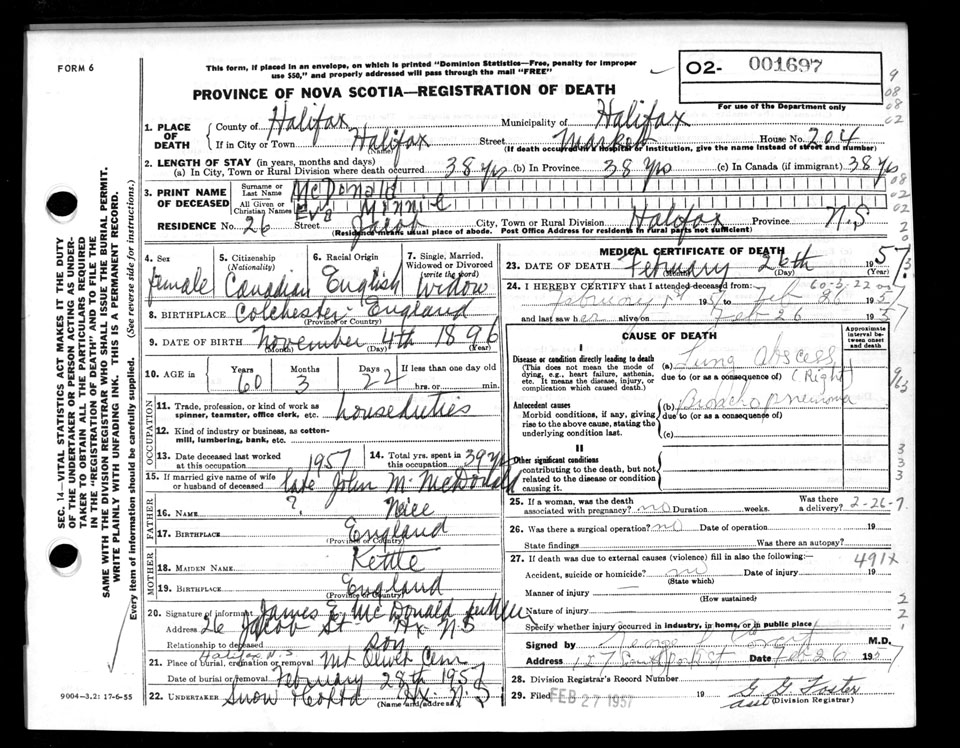 FORM 6
This form, if placed in an envelope, on which is printed "Dominion Statistics—Free, penalty for improper
use $50," and properly addressed will pass through the mail "FREE"
O2- 001697
PROVINCE OF NOVA SCOTIA—REGISTRATION OF DEATH
For use of the Department only
9
08
08
02
1. PLACE OF DEATH
County of Halifax Municipality of Halifax
If in City or Town Halifax Street Market House No. 204
(Name) (If death occurred in a hospital or institution, give the name instead of street and number)
2. LENGTH OF STAY (in years, months and days)
(a) In City, Town or Rural Division where death occurred 38 yrs (b) In Province 38 yrs (c) In Canada (if immigrant) 38 yrs
3. PRINT NAME OF DECEASED
Surname or Last Name McDonald
All Given or Christian Names Eva Minnie
RESIDENCE No. 26 Street Jacob City, Town or Rural Division Halifax Province N.S
(Residence means usual place of abode. Post Office Address for residents in rural parts not sufficient)
4. Sex
female
5. Citizenship (Nationality)
Canadian
6. Racial Origin
English
7. Single, Married, Widowed or Divorced (write the word)
Widow
8. BIRTHPLACE Colchester England
(Province or Country)
9. DATE OF BIRTH November 4th 1896
(Month) (Day) (Year)
10. AGE in Years 60 Months 3 Days 22 If less than one day old
hrs. or min.
OCCUPATION
11. Trade, profession, or kind of work as spinner, teamster, office clerk, etc. houseduties
12. Kind of industry or business, as cotton-mill, lumbering, bank, etc.
13. Date deceased last worked at this occupation 1957
14. Total yrs. spent in this occupation 39 yrs
15. If married give name of wife or husband of deceased late John M. McDonald
FATHER
16. NAME ?
17. BIRTHPLACE England
(Province or Country)
MOTHER
18. MAIDEN NAME Kettle
19. BIRTHPLACE England
(Province or Country)
20. Signature of informant James E. McDonald
Address 26 Jacob St Hx N.S
Relationship to deceased son
Halifax, N.S
21. Place of burial, cremation or removal Mt Olivet Cem
Date of burial or removal February 28th 1957
22. UNDERTAKER Snow Hx. N.S
(Name and address)
MEDICAL CERTIFICATE OF DEATH
23. DATE OF DEATH February 26th 1957
(Month) (Day) (Year)
24. I HEREBY CERTIFY that I attended deceased from: 60-3-22
February 1st 1957 to Feb 26 1957
and last saw her alive on Feb 26 1957
CAUSE OF DEATH
Approximate interval between onset and death
I
Disease or condition directly leading to death
(This does not mean the mode of dying, e.g., heart failure, asthenia, etc. It means the disease, injury, or complication which caused death.)
(a) Lung Abscess
due to (or as a consequence of) (Right)
Antecedent causes
Morbid conditions, if any, giving rise to the above cause, stating the underlying condition last.
(b) Bronchopneumonia
due to (or as a consequence of)
(c)
II
Other significant conditions
contributing to the death, but not related to the disease or condition causing it.
25. If a woman, was the death associated with pregnancy? no Duration weeks. Was there a delivery? 2-26-7
26. Was there a surgical operation? no Date of operation 19
State findings Was there an autopsy?
27. If death was due to external causes (violence) fill in also the following: 491X
Accident, suicide or homicide? no Date of injury 19
(State which)
Manner of injury
(How sustained)
Nature of injury
Specify whether injury occurred in industry, in home, or in public place
Signed by George M.D.
Address 127 Date Feb 26 1957
28. Division Registrar's Record Number
29. Filed FEB 27 1957 19 G G Foster
asst (Division Registrar)
SEC. 14—VITAL STATISTICS ACT MAKES IT THE DUTY
OF THE UNDERTAKER OR PERSON ACTING AS UNDER-
TAKER TO OBTAIN ALL THE PARTICULARS REQUIRED
IN THE "REGISTRATION OF DEATH" AND TO FILE THE
SAME WITH THE DIVISION REGISTRAR WHO SHALL ISSUE THE BURIAL PERMIT.
WRITE PLAINLY WITH UNFADING INK. THIS IS A PERMANENT RECORD.
Every item of information should be carefully supplied. (See reverse side for instructions.)
9004-3,2: 17-6-55